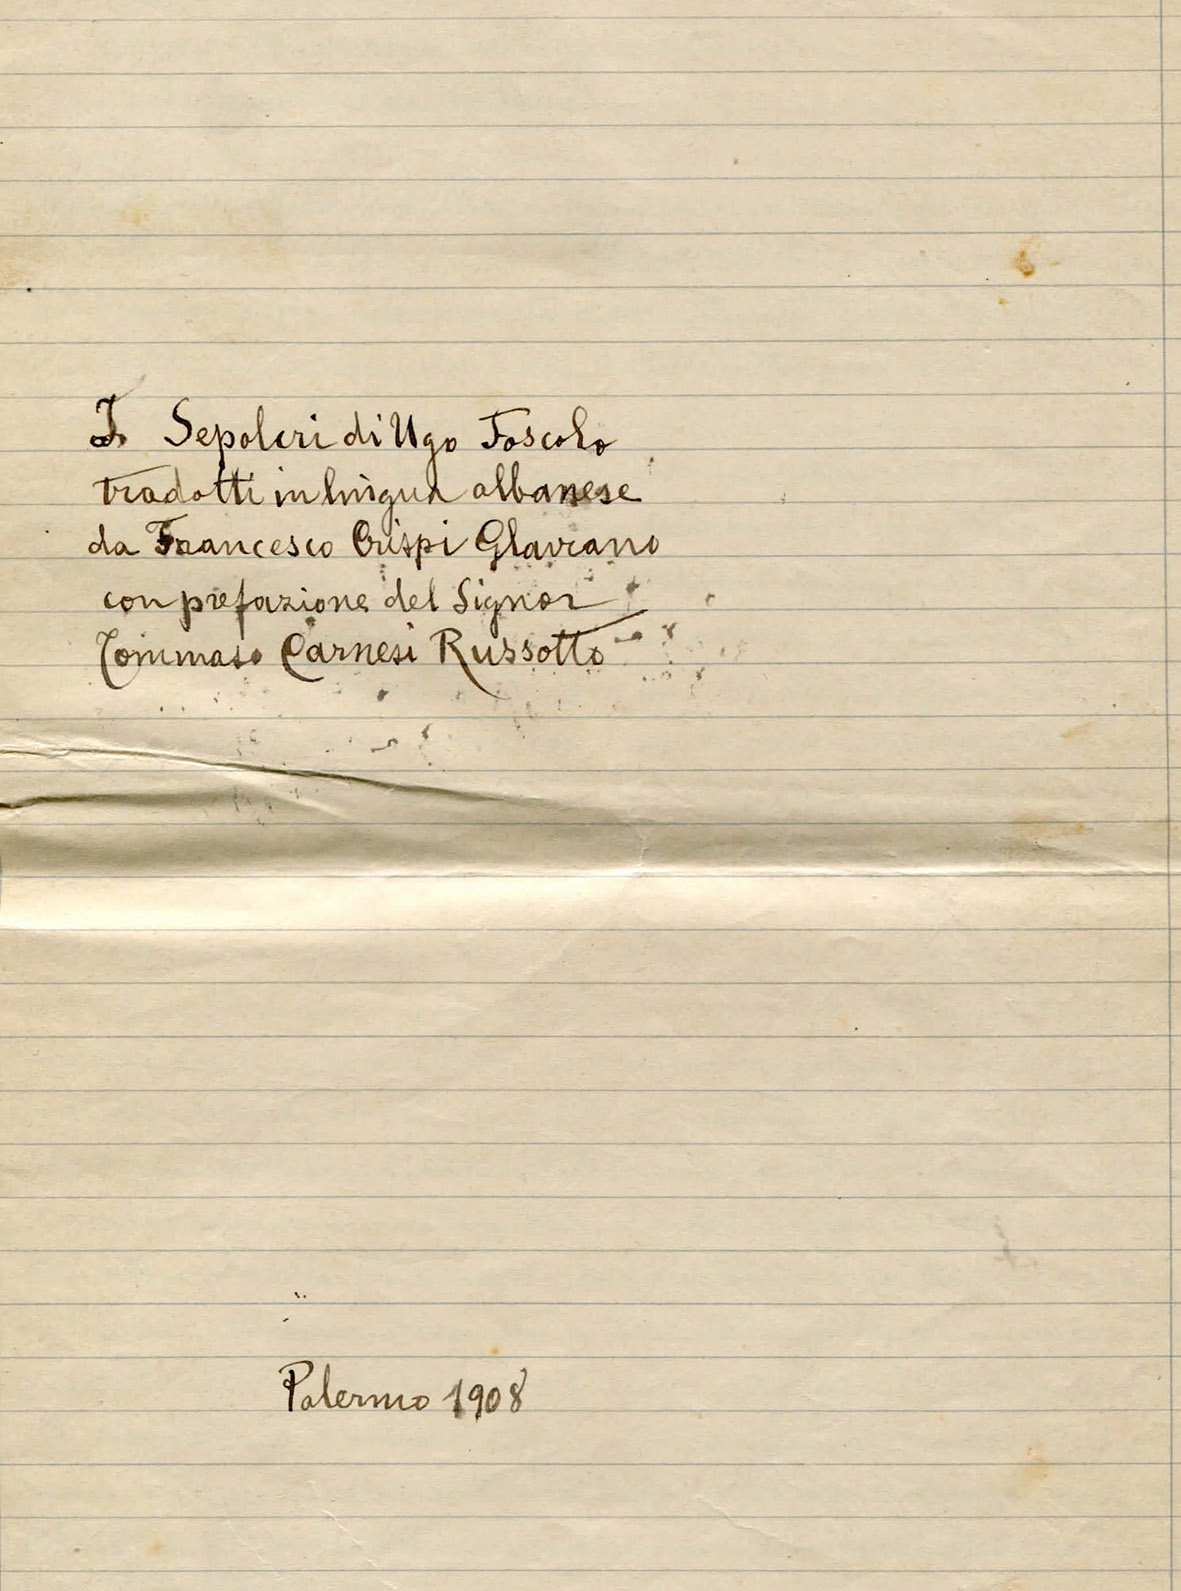 I Sepolcri di Ugo Foscolo
tradotti in lingua albanese
da Francesco Crispi Glaviano
con prefazione del Signor
Tommaso Carnesi Russotto
Palermo 1908